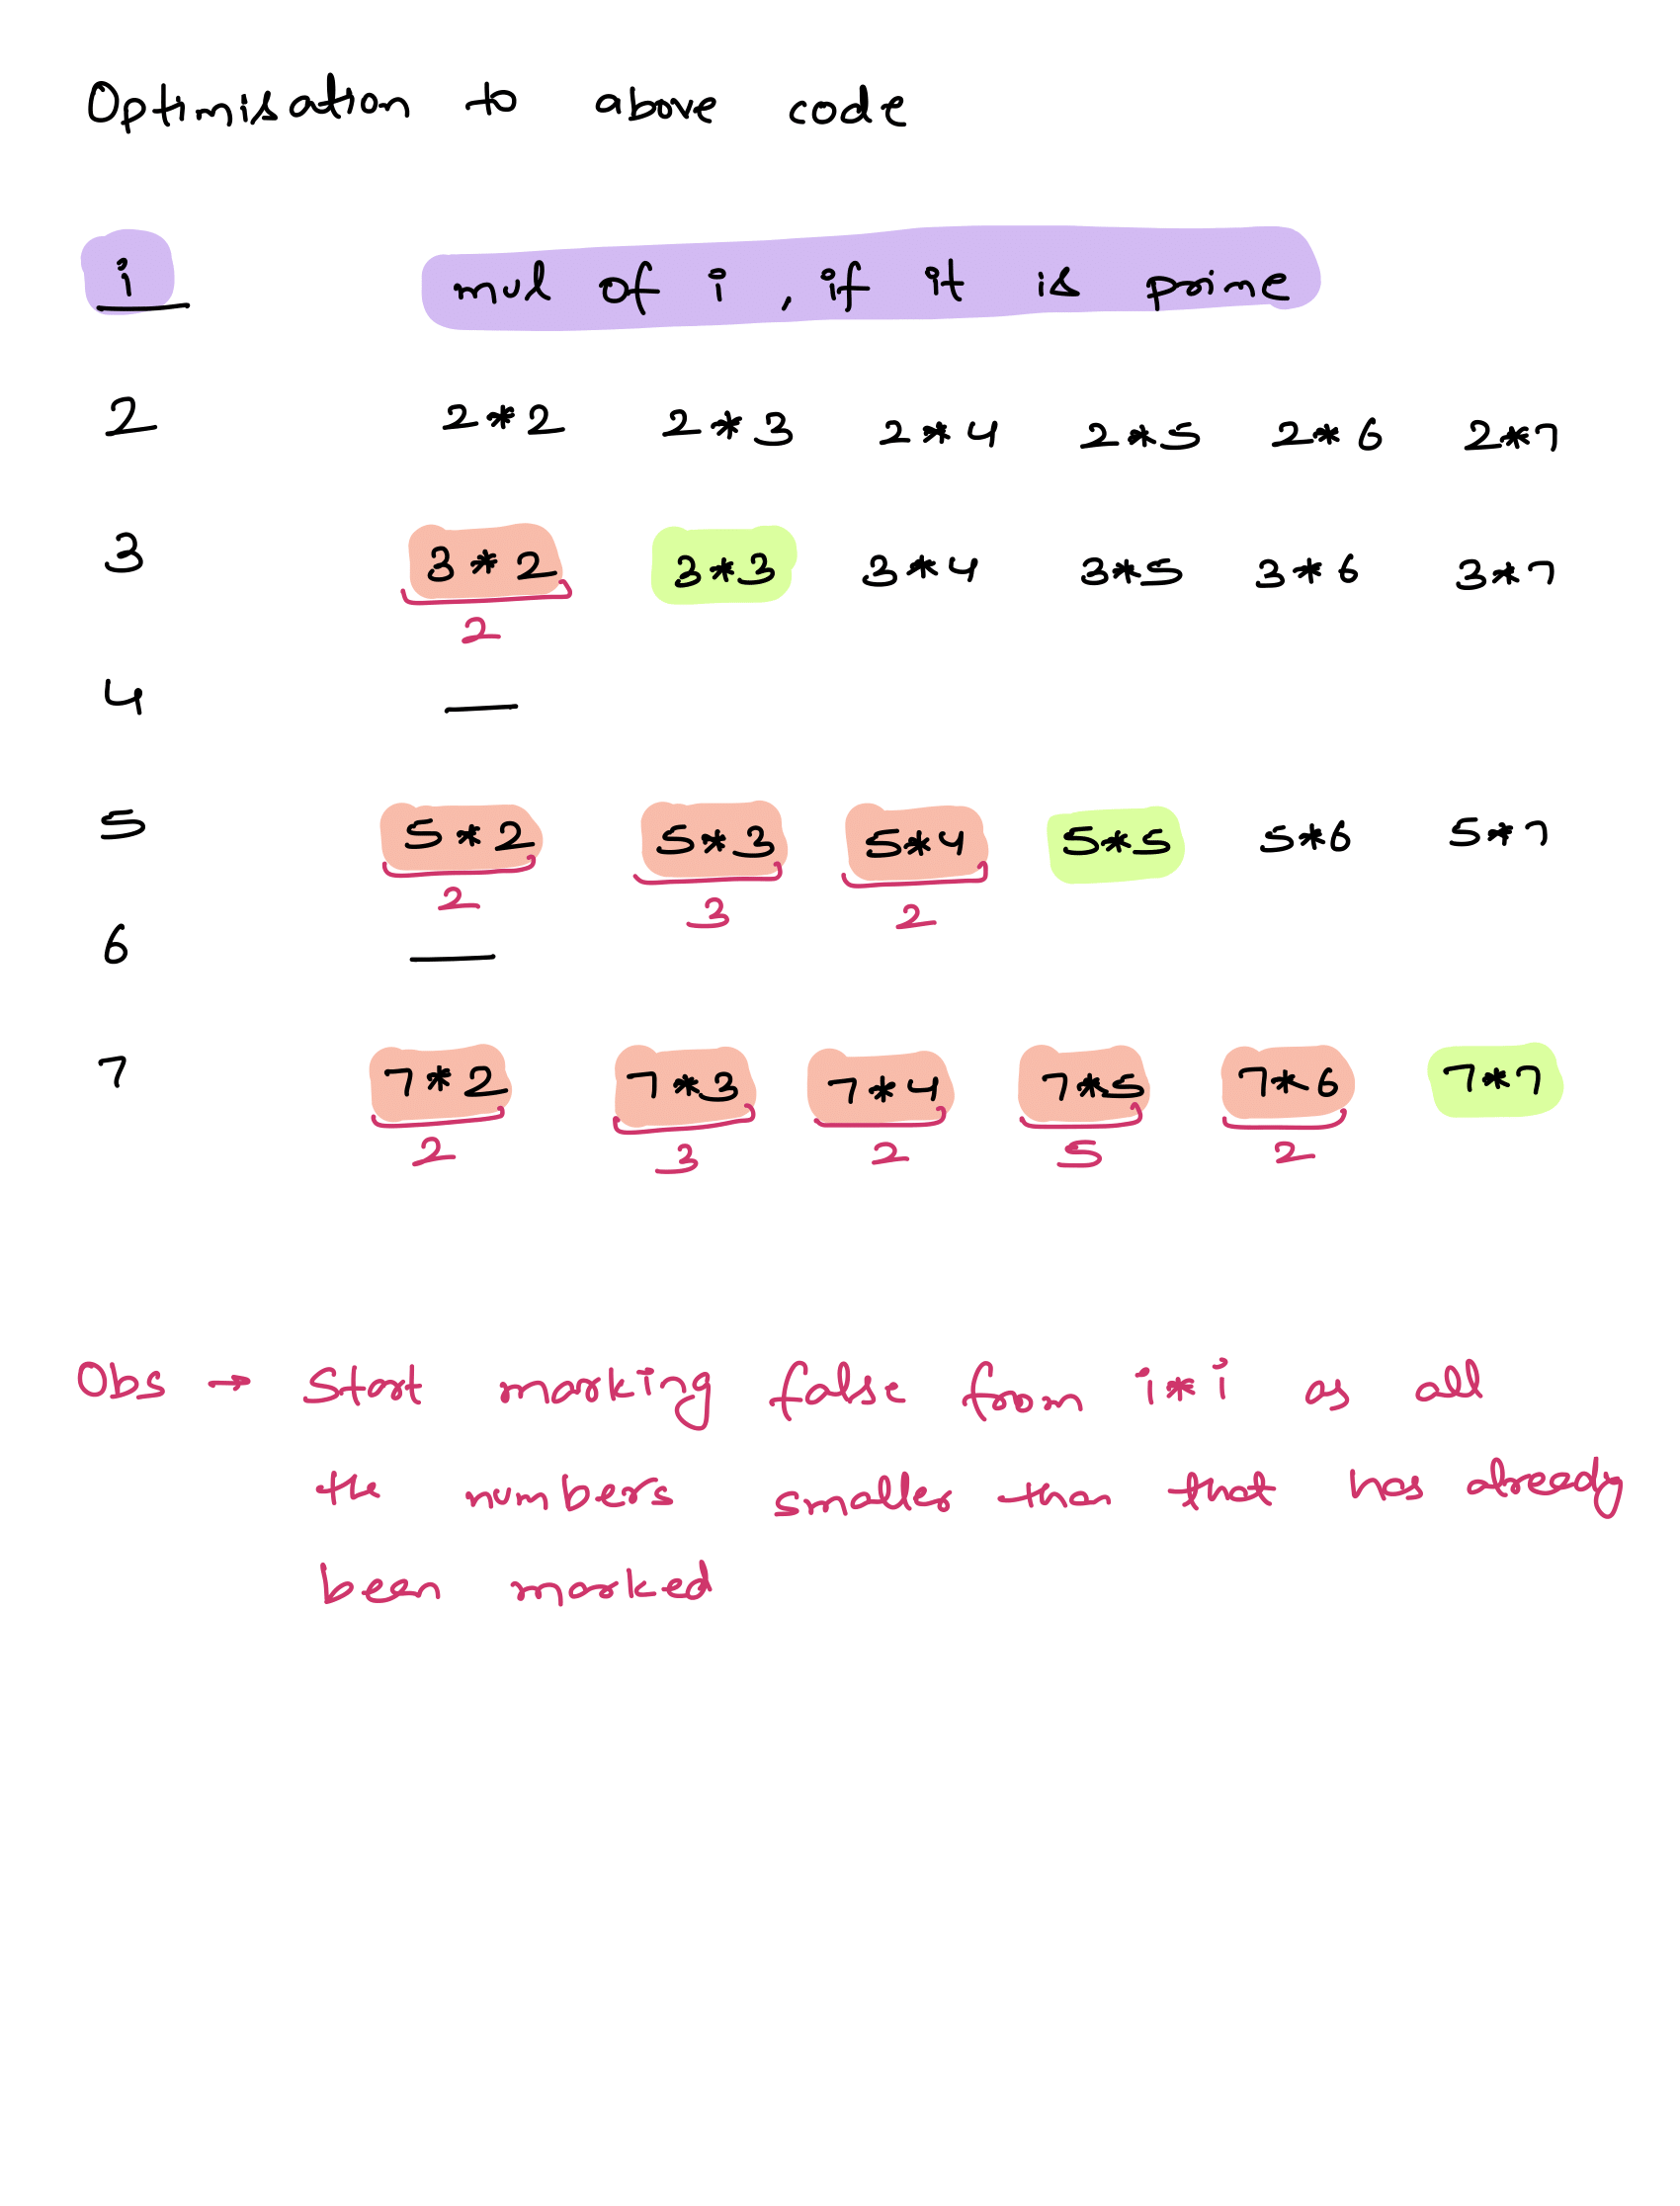 Optimisation to above code
i mul of i , if it is prime
2 2*2 2*3 2*4 2*5 2*6 2*7
3 3*2 3*3 3*4 3*5 3*6 3*7
2
4 —
5 5*2 5*3 5*4 5*5 5*6 5*7
2 3 2
6 —
7 7*2 7*3 7*4 7*5 7*6 7*7
2 3 2 5 2
Obs → Start marking false from i*i as all
the numbers smaller than that has already
been marked